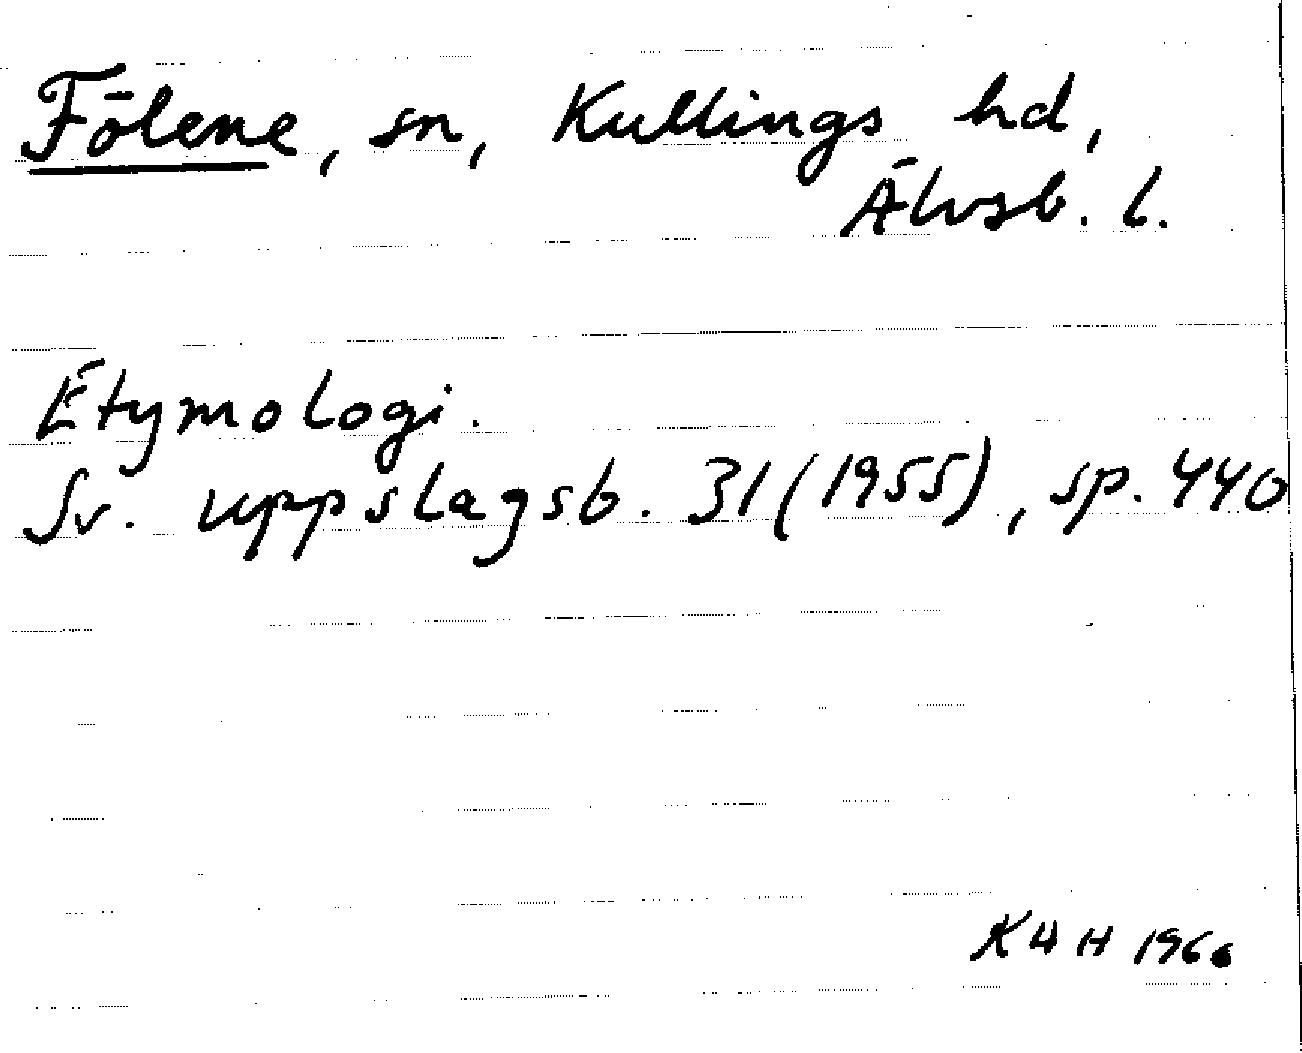 Fölene, sn, Kullings hd,
Älvsb. l.
Etymologi.
Sv. uppslagsb. 31 (1955), sp. 440
KHH 1966